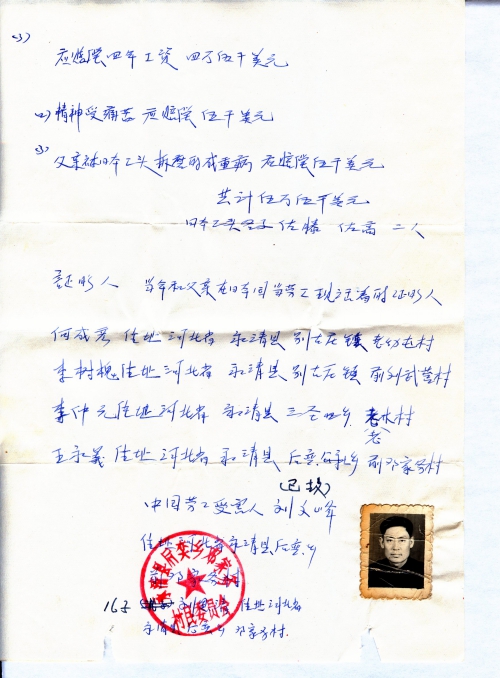 应赔偿四年工资 四万伍千美元
(二)精神受痛苦 应赔偿 伍千美元
父亲被日本工头折磨的成重病 应赔偿伍千美元
共计伍万伍千美元
日本工头名子 佐滕 佐高 二人
证明人 当年和父亲在日本同当劳工现还活着的证明人
何成君 住址 河北省 永清县 别古庄镇 村
李树槐 住址 河北省 永清县 别古庄镇 前刘武营村
李仲元 住址 河北省 永清县 三圣口乡 老 村
王永義 住址 河北省 永清县 后奕乡 前邓家务村
已故
中国劳工受害人 刘文峰
住址河北省永清县后奕乡
前邓家务村
村民委员会
住址河北省
永清县后奕乡 邓家务村